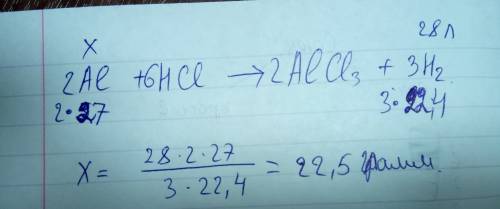 x 28 л
2Al + 6HCl → 2AlCl₃ + 3H₂
2·27 3·22,4
x = 28·2·27 / 3·22,4 = 22,5 грамм.